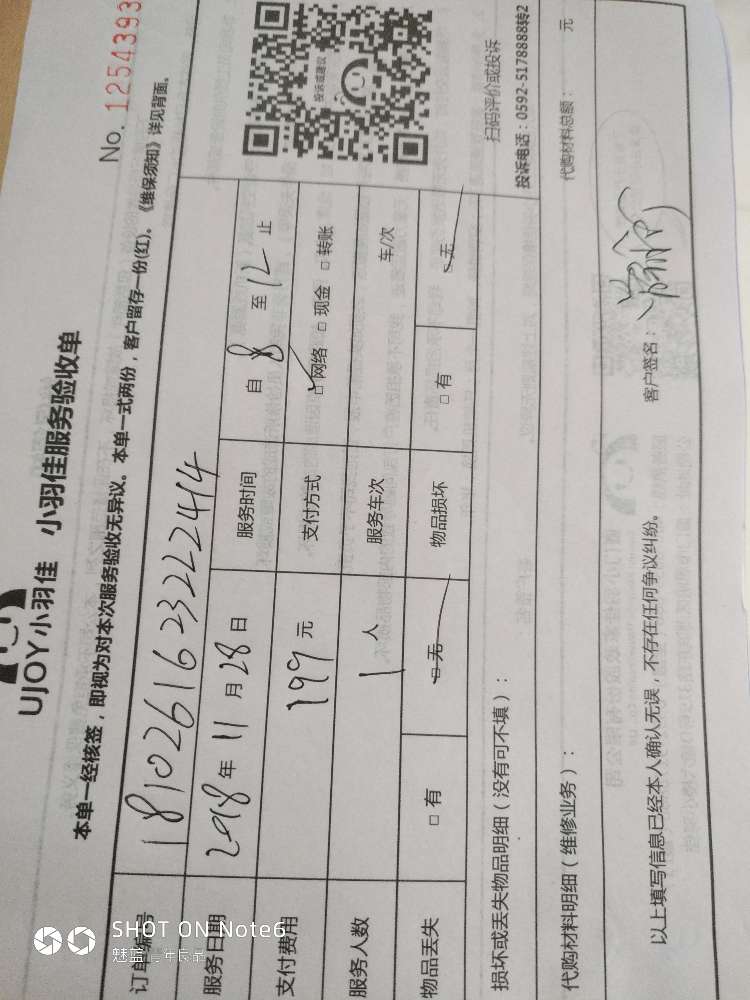 UJOY小羽佳 小羽佳服务验收单
No. 1254393
本单一经核签，即视为对本次服务验收无异议。本单一式两份，客户留存一份(红)。《维保须知》详见背面。
订单编号 1810261623222414
服务日期 2018年11月28日 服务时间 自8至12止
支付费用 199元 支付方式 ☑网络 □现金 □转账
服务人数 1人 服务车次 车/次
物品丢失 □有 ☑无 物品损坏 □有 ☑无
投诉或建议
扫码评价或投诉
投诉电话：0592-5178888转2
损坏或丢失物品明细（没有可不填）：
代购材料明细（维修业务）： 代购材料总额： 元
以上填写信息已经本人确认无误，不存在任何争议纠纷。 客户签名：
SHOT ON Note6